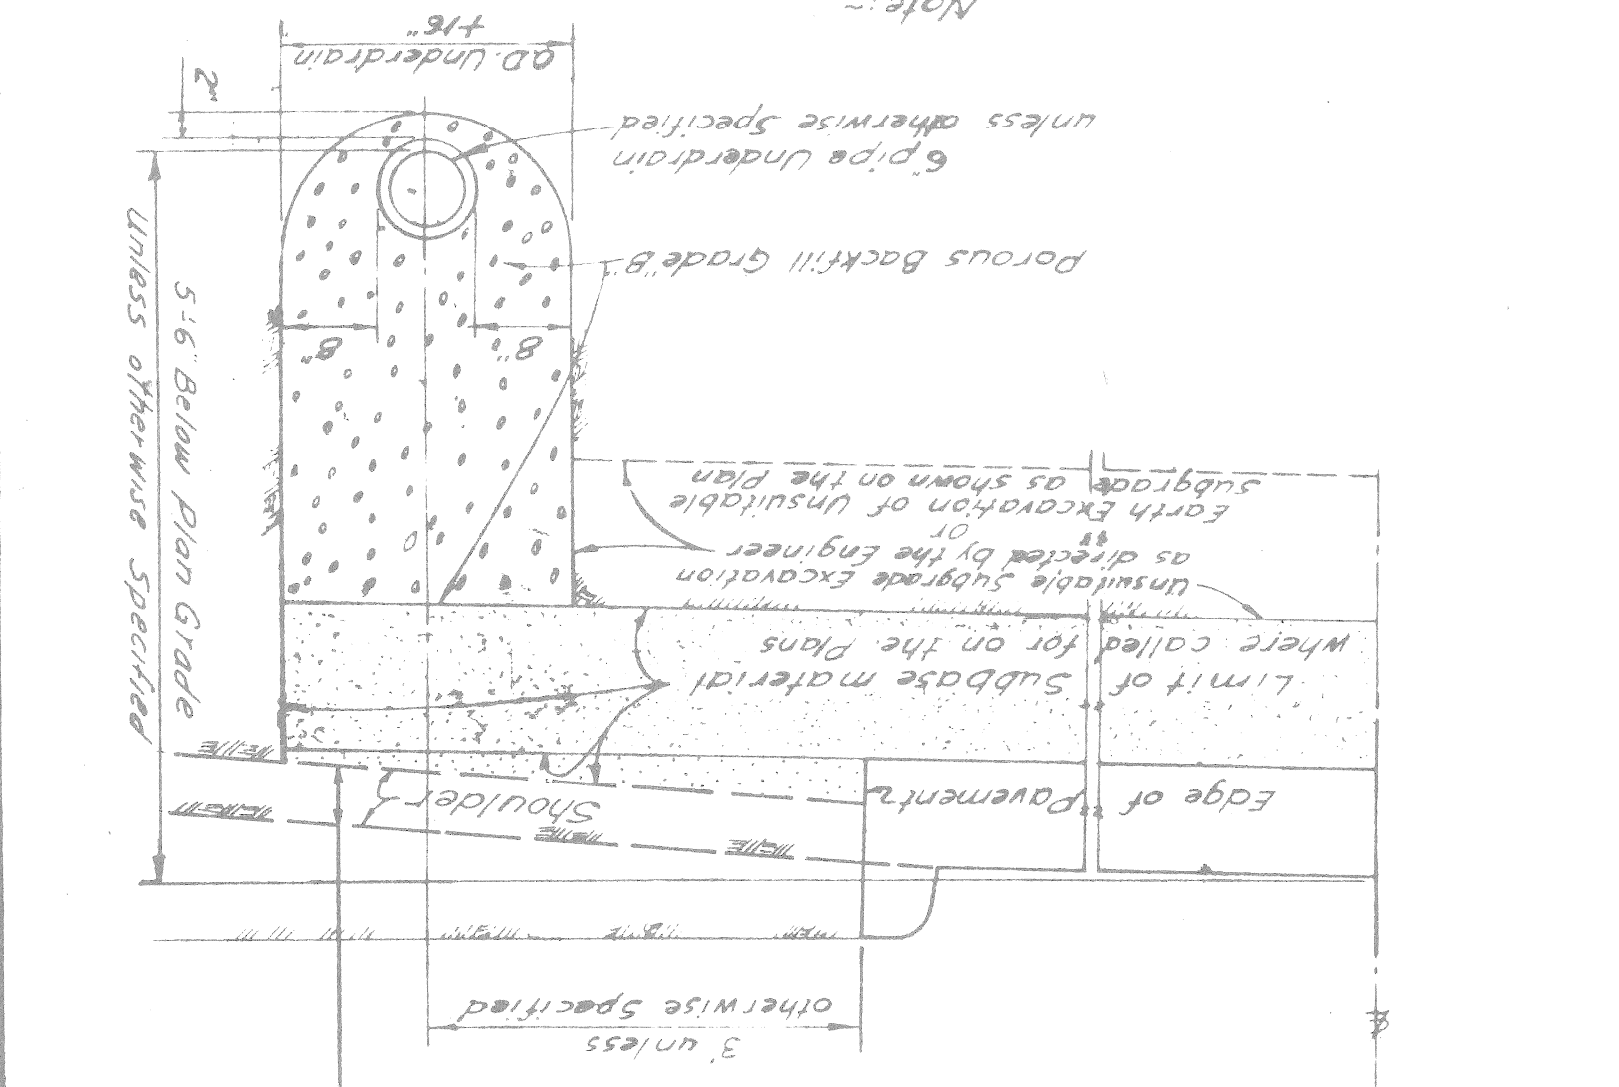 3' unless
otherwise Specified
℄
Shoulder
Edge of Pavement
Limit of Subbase material
where called for on the Plans
Unsuitable Subgrade Excavation
as directed by the Engineer
or
Earth Excavation of Unsuitable
Subgrade as shown on the Plan
5'-6" Below Plan Grade
Unless otherwise Specified
8"
8"
Porous Backfill Grade "B"
6" pipe Underdrain
unless otherwise Specified
2"
O.D. Underdrain
+16"
Note:-